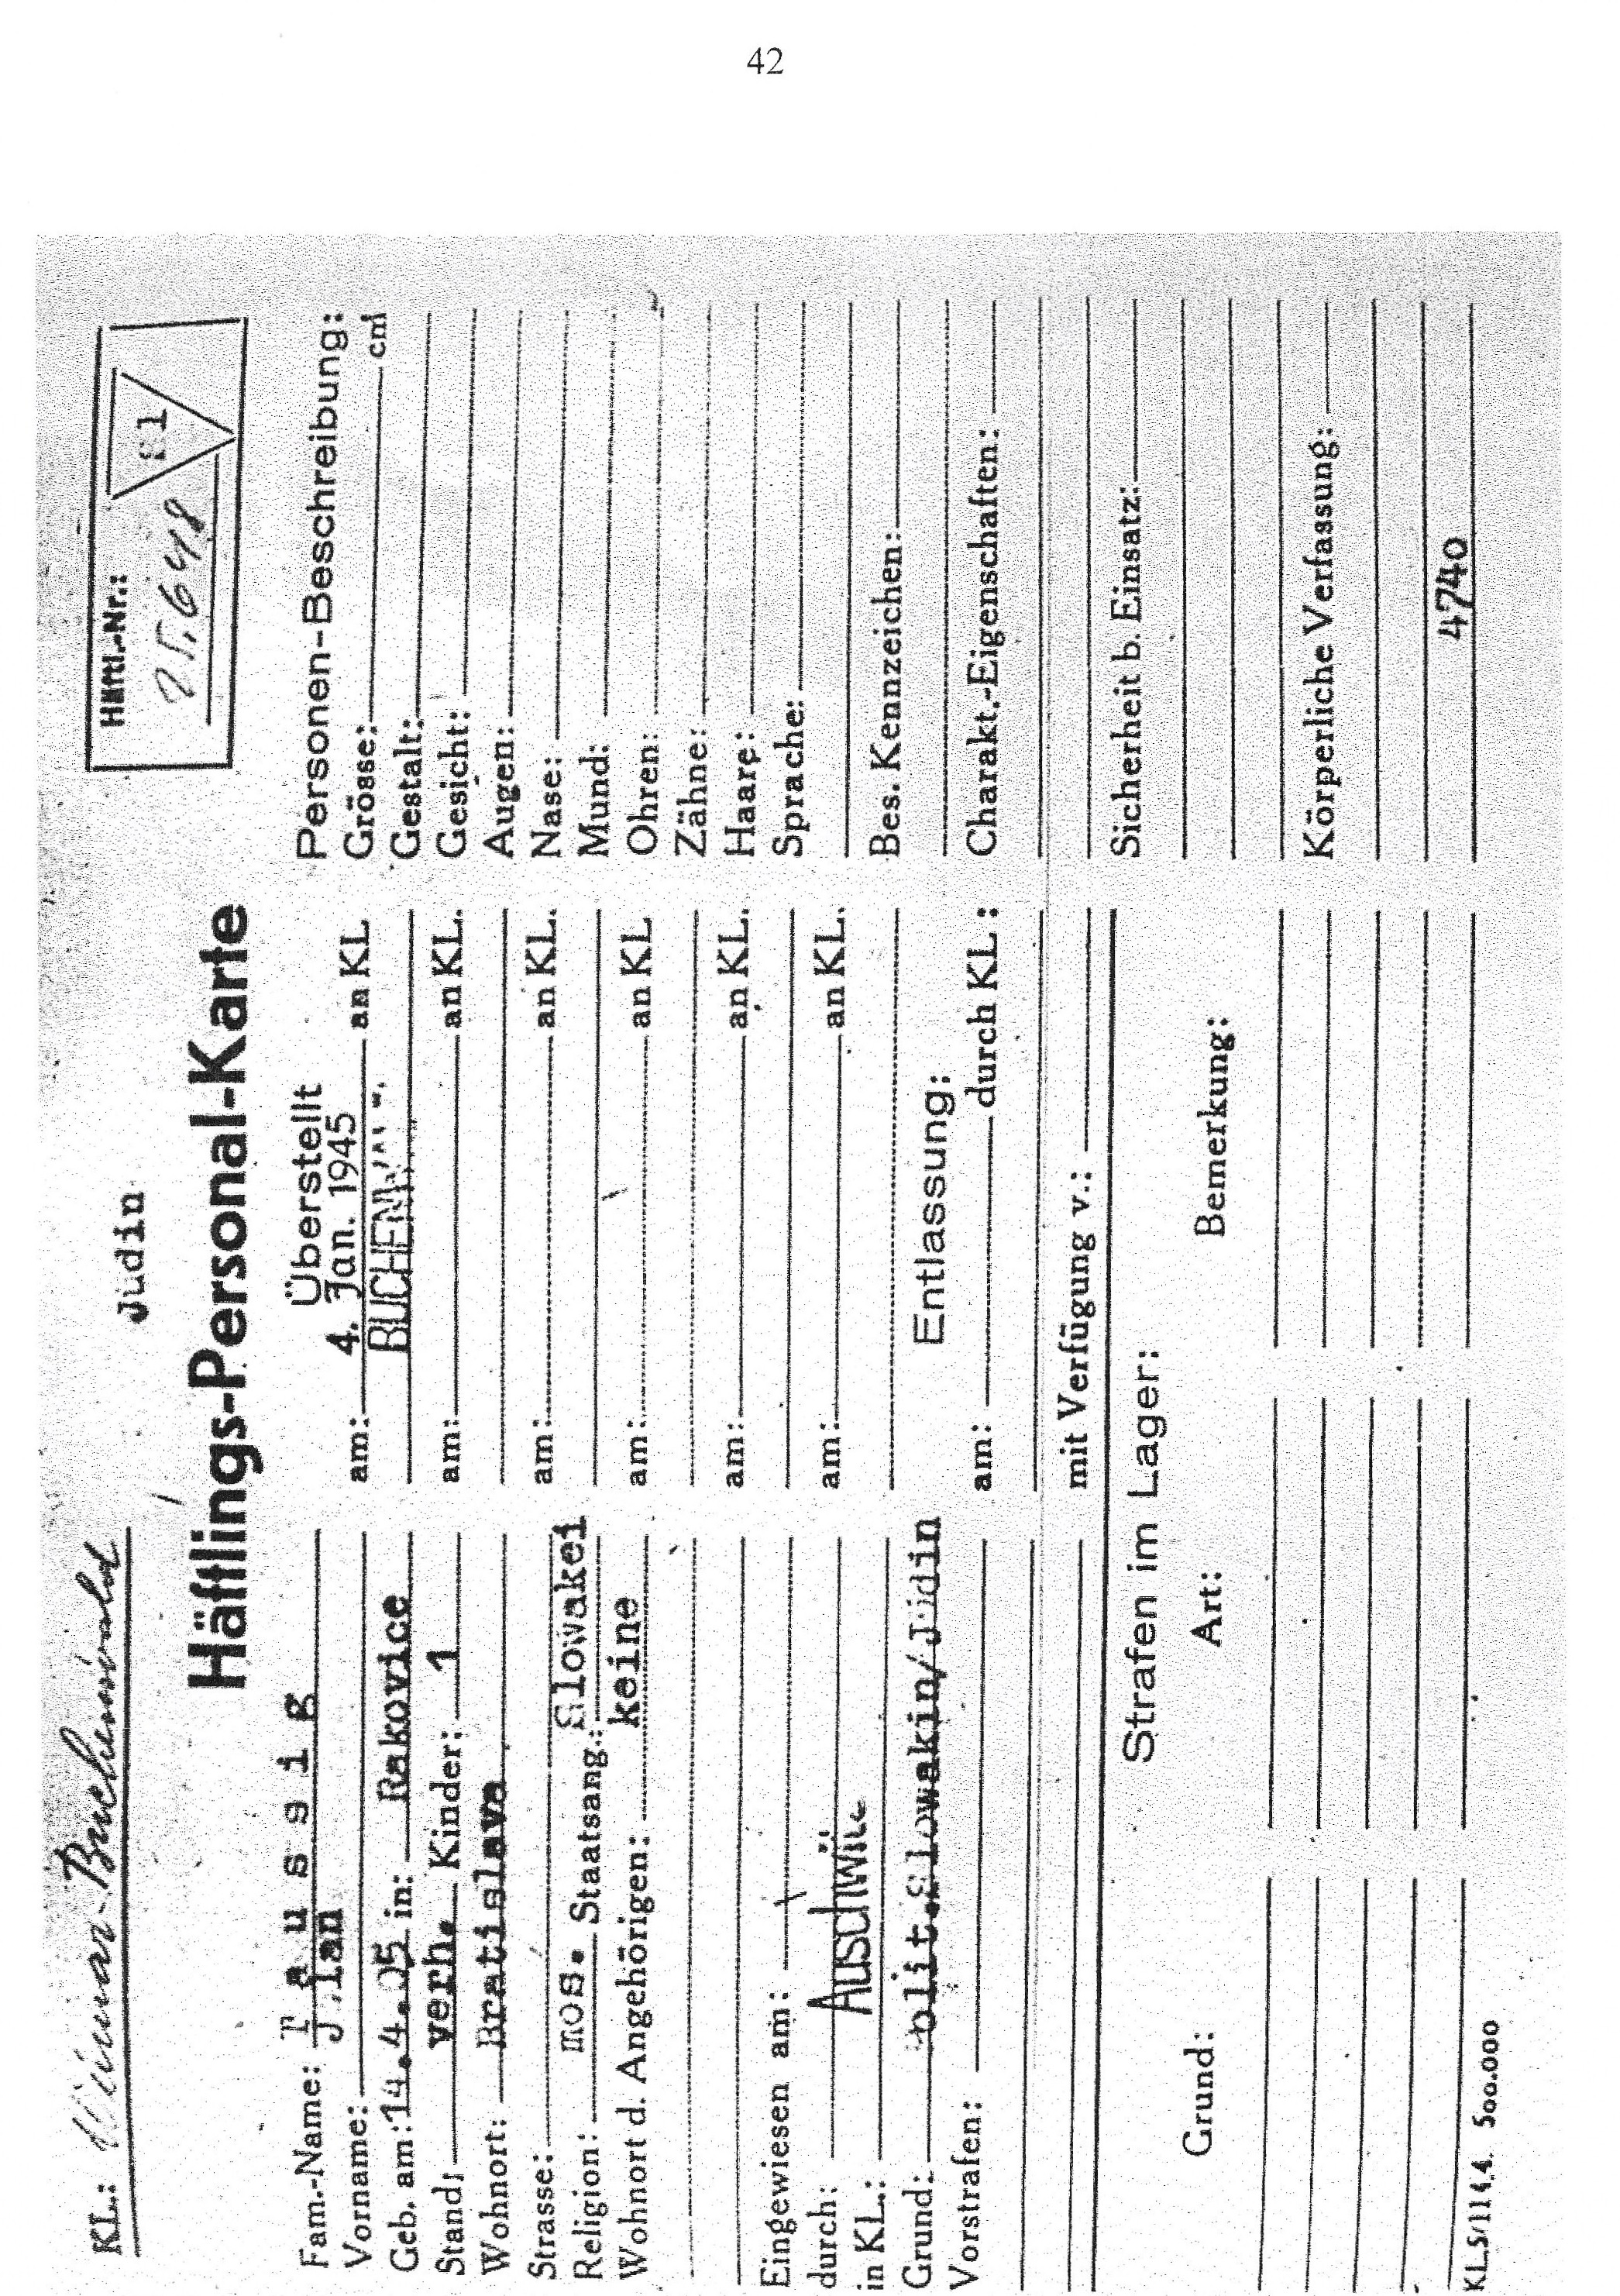 42
KL.: Weimar-Buchenwald
Jüdin
Häftl.-Nr.:
25.648
Häftlings-Personal-Karte
Fam.-Name: T a u s s i g
Vorname:
Geb. am: 14.4.05 in: Rakovice
Stand: verh. Kinder: 1
Wohnort: Bratislava
Strasse:
Religion: mos. Staatsang.: Slowakei
Wohnort d. Angehörigen: keine
Eingewiesen am:
durch:
in KL.: Auschwitz
Grund: Polit.Slowakin/Jüdin
Vorstrafen:
Überstellt
am: 4. Jan. 1945 an KL
am: an KL.
am: an KL.
am: an KL
am: an KL.
am: an KL.
Entlassung:
am: durch KL.:
mit Verfügung v.:
Personen-Beschreibung:
Grösse: cm
Gestalt:
Gesicht:
Augen:
Nase:
Mund:
Ohren:
Zähne:
Haare:
Sprache:
Bes. Kennzeichen:
Charakt.-Eigenschaften:
Sicherheit b. Einsatz:
Körperliche Verfassung:
4740
Strafen im Lager:
Grund: Art: Bemerkung:
KL.5/11 4.4. 500.000